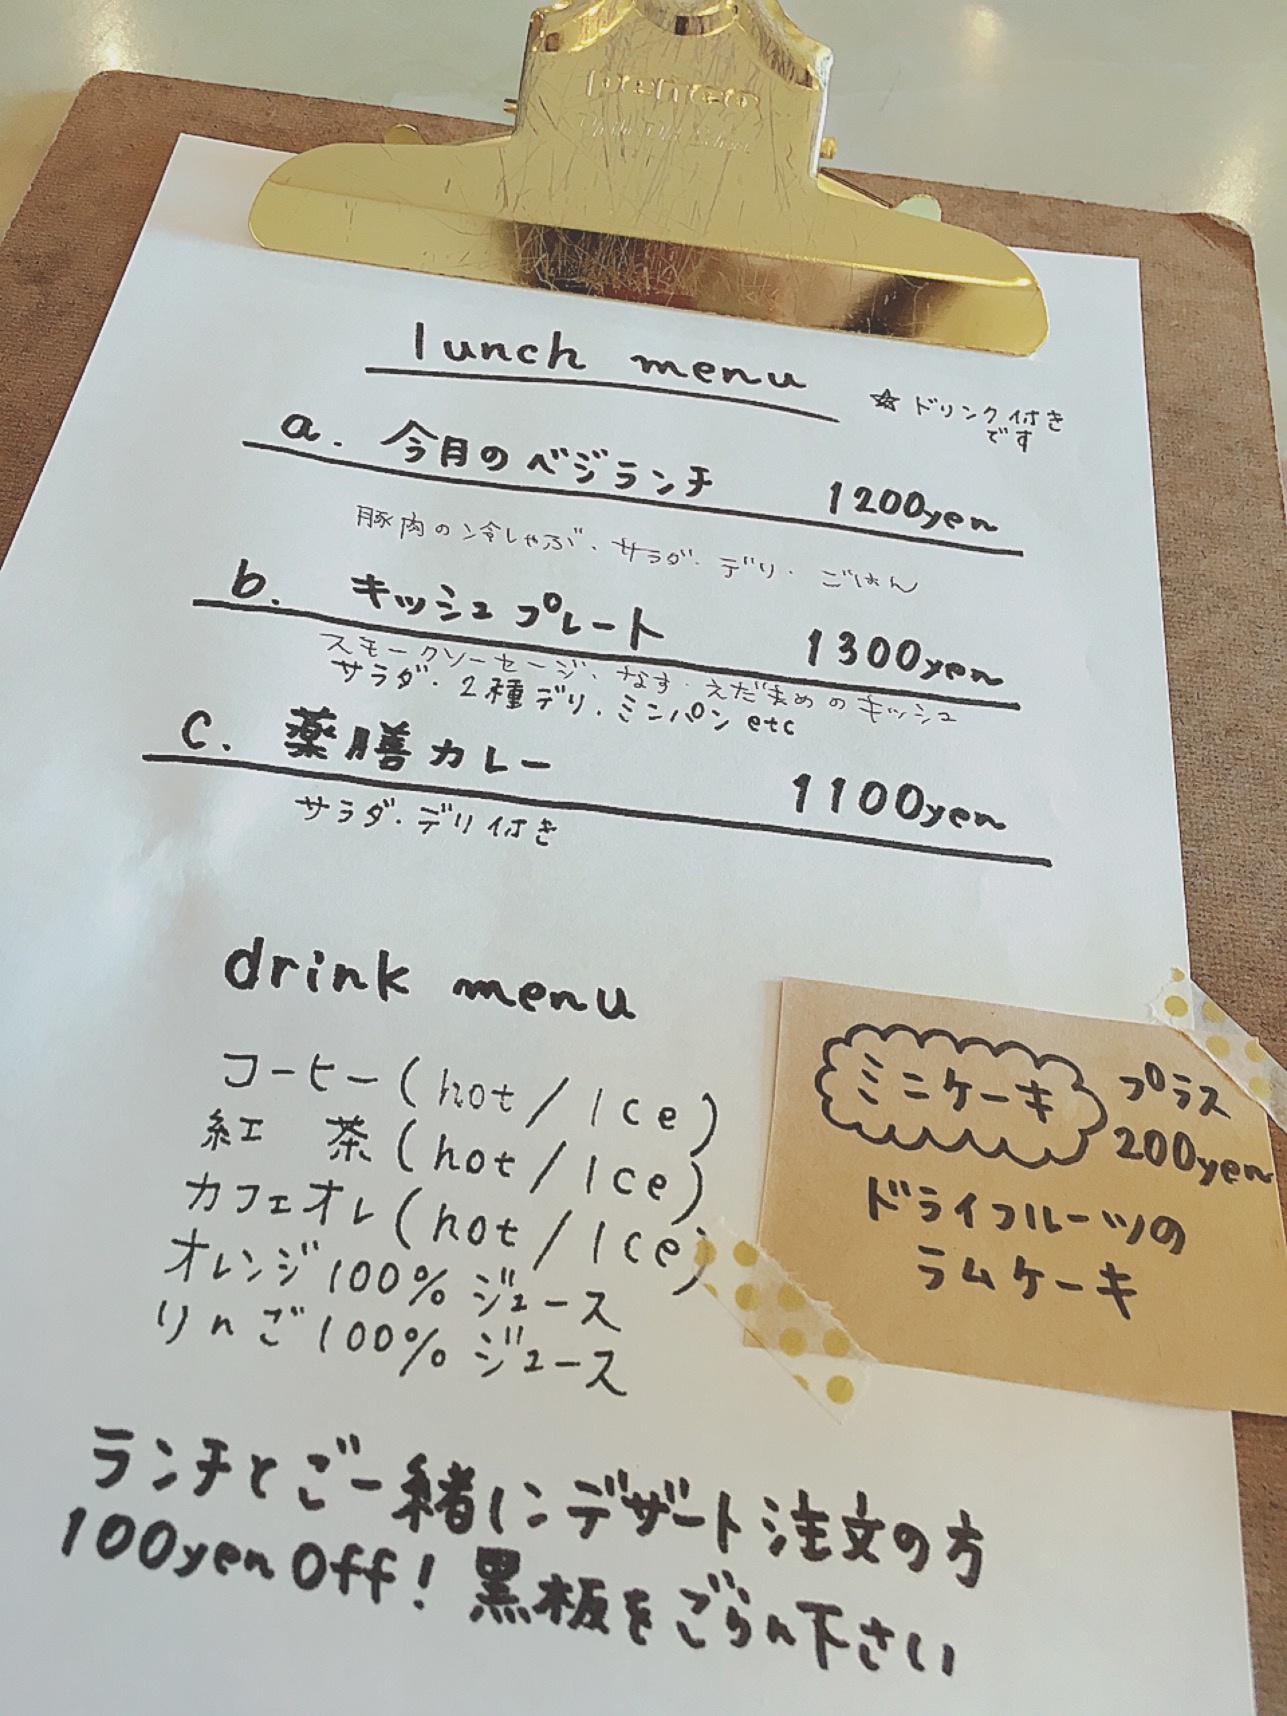 penco
lunch menu
☆ドリンク付き
です
a. 今月のベジランチ 1200yen
豚肉の冷しゃぶ、サラダ・デリ・ごはん
b. キッシュプレート 1300yen
スモークソーセージ、なす・えだまめのキッシュ
サラダ・2種デリ、ミンパン etc
c. 薬膳カレー 1100yen
サラダ・デリ付き
drink menu
コーヒー (hot / Ice)
紅 茶 (hot / Ice)
カフェオレ (hot / Ice)
オレンジ100% ジュース
りんご100% ジュース
ミニケーキ プラス
200yen
ドライフルーツの
ラムケーキ
ランチとご一緒にデザート注文の方
100yen Off! 黒板をごらん下さい